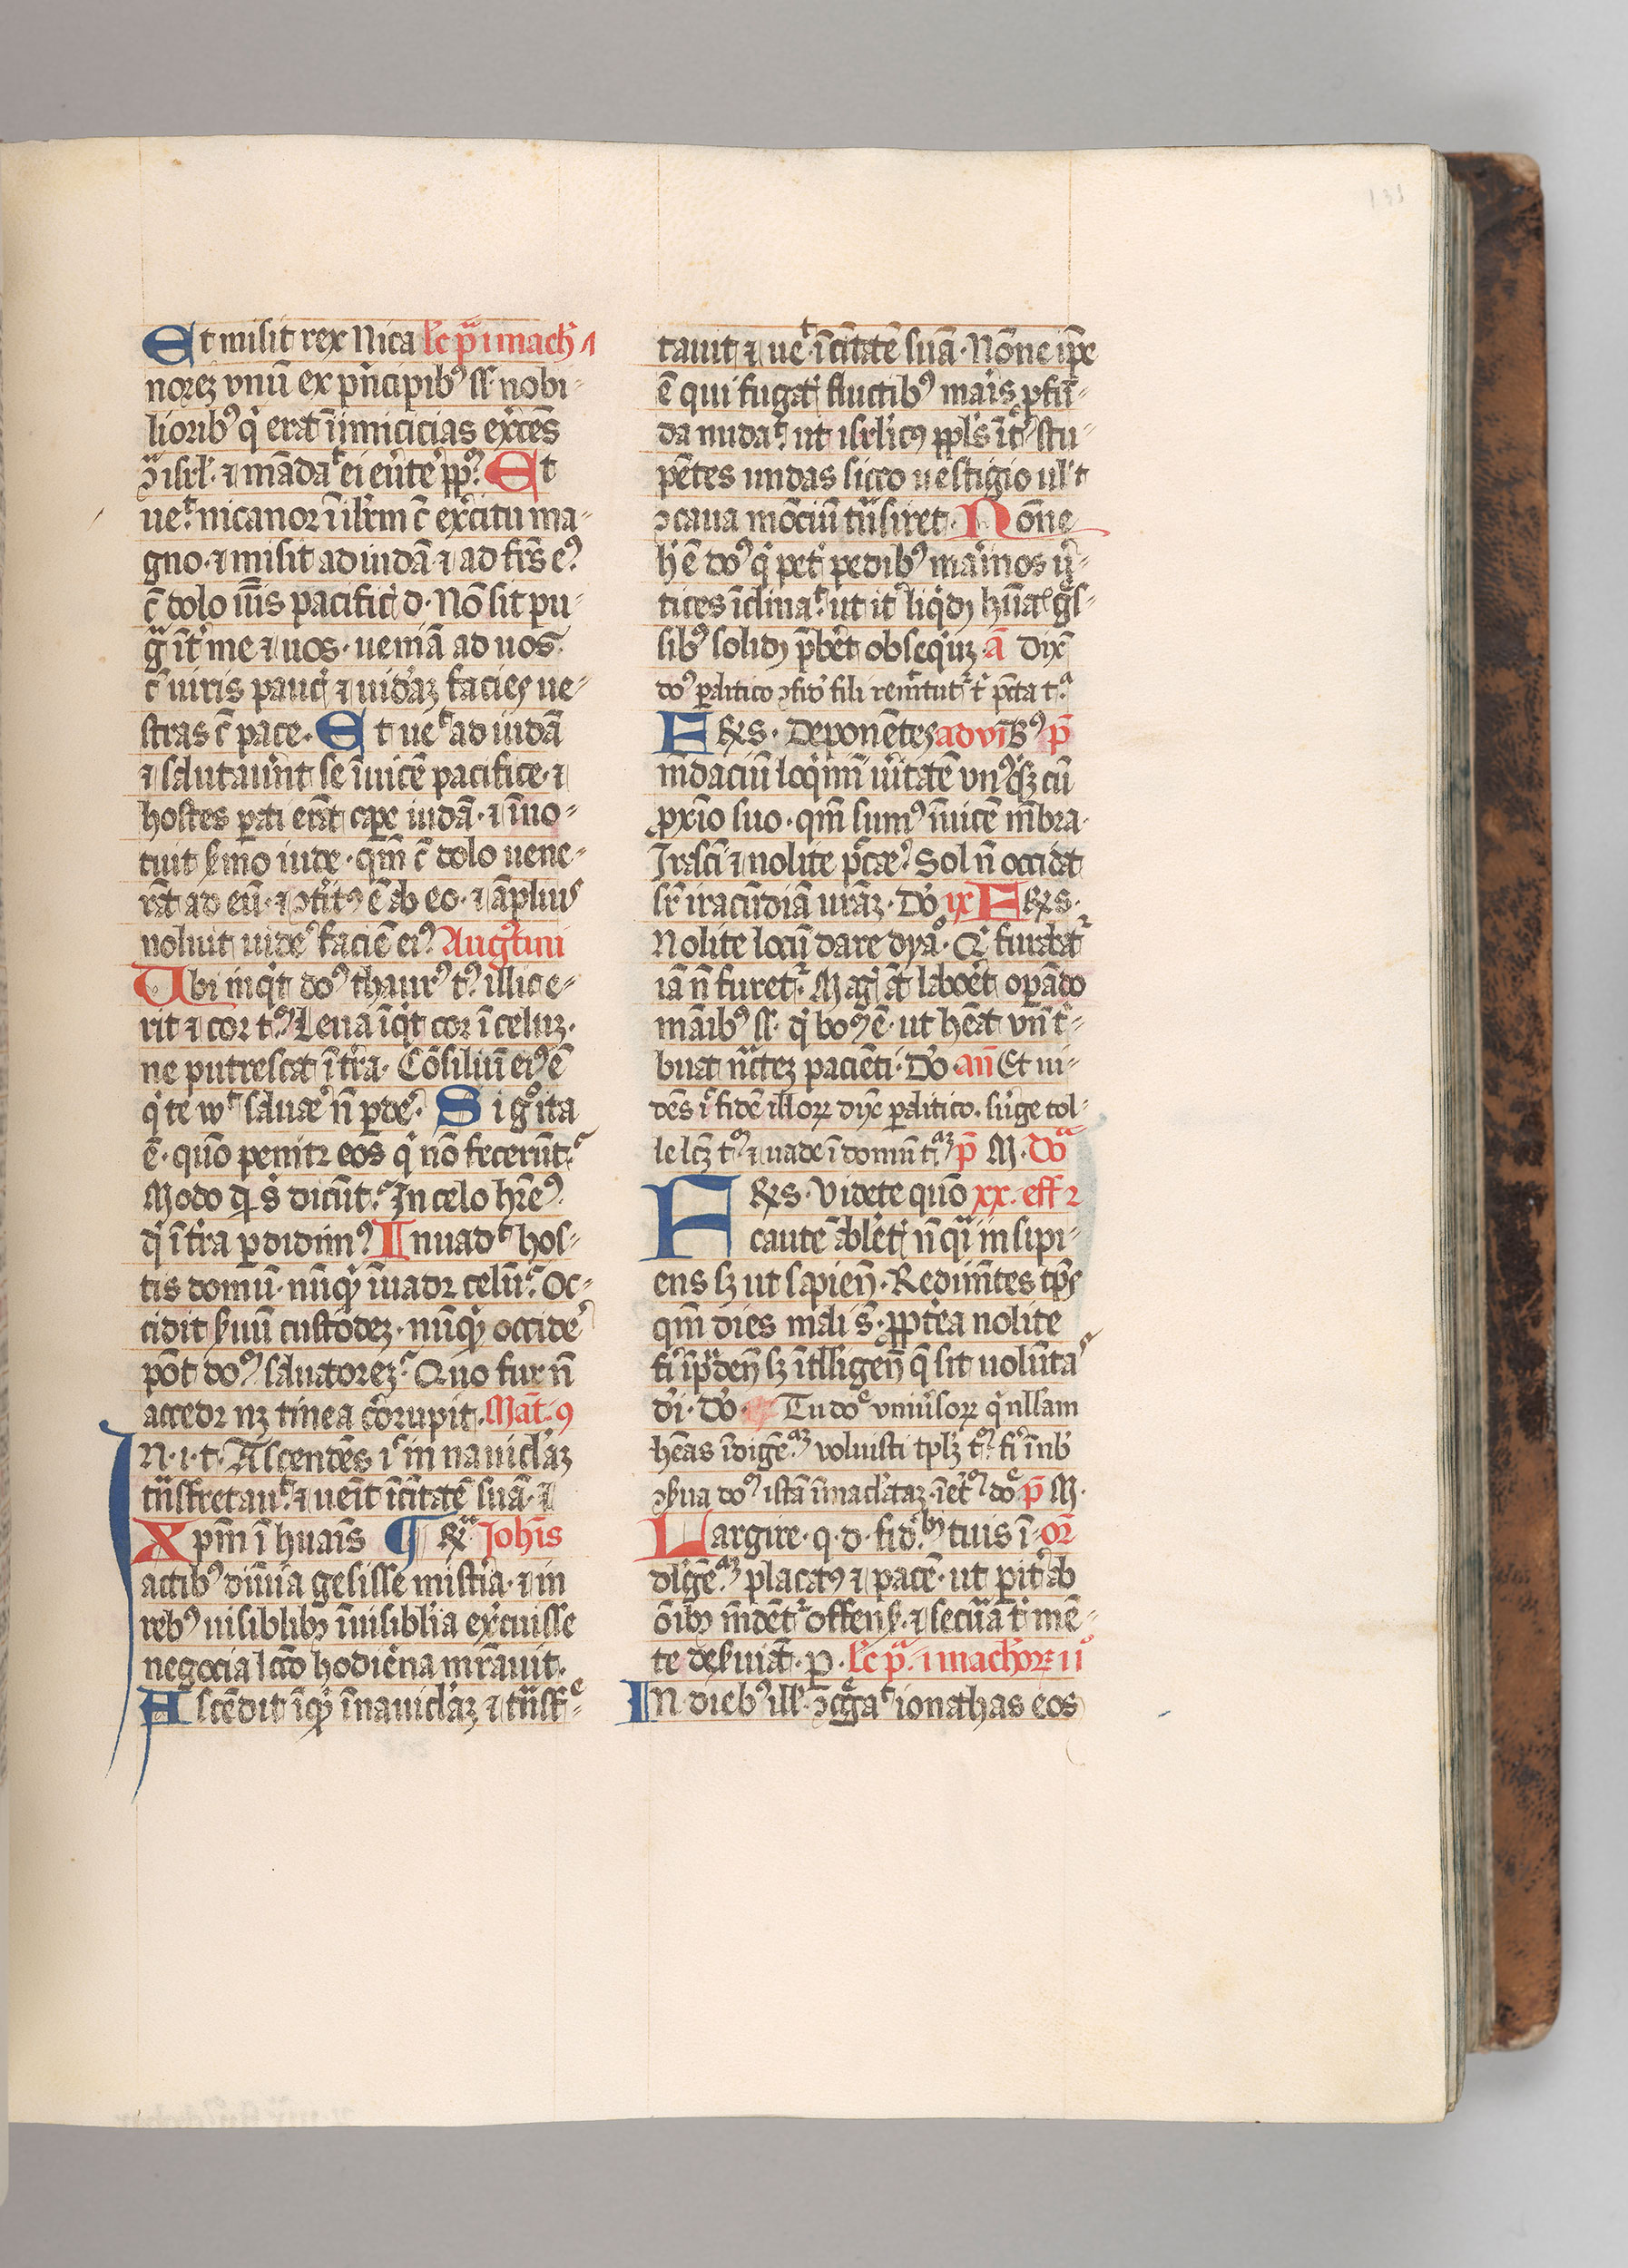 Et misit rex Nica lc̄ p̄a i mach̄ 1
norez vnū ex p̄ncipibꝰ ss. nobi-
lioribꝰ q̇ erāt īimicicias exc̄ēs
ꝯ isrl̄. ⁊ mādaᵗ ei eu̓te̓ pp̄. Et
ueᵗ nicanor ī ilr̄m c̄ exc̓itu ma-
gno. ⁊ misit ad iudā ⁊ ad fr̄s eꝰ
c̄ dolo u̓is pacific̓ d. Nō sit pu-
gᵃ īt̓ me ⁊ uos. ueniā ad uos
c̄ uiris pauc̓ ⁊ uidᵃz facies ue-
stras c̄ pace. Et ueᵗ ad iudā
⁊ salutaūnt se īuicē pacifice. ⁊
hostes ꝑati erāt cape̓ iudā. ⁊ īno-
tuit s̓mo iude. qm̄ c̄ dolo uene-
rāt ad eū. ⁊ ꝯt̓itꝰ ē ab eo. ⁊ āpliuˢ
noluit uide̓ faciē eiꝰ Aug̓tini
Ubi inq̇t doꝰ thaurꝰ tꝰ illic e-
rit ⁊ cor tꝰ. Leua īq̇t cor ī celuz.
ne putrescat ī tr̄a. Cōsiliū eiꝰ ē
q̇ te wᵗ saluae̓ n̄ ꝑde̓. Si gᵒ ita
ē. quō penitz eos q̇ nō fecerūt.
Modo q̇ s̄ dicūt. In celo hr̄eꝰ
q̇ ī tr̄a ꝑdidimꝰ. Inuadᵗ hos-
tis domū. nūq̇ īuadz celū. Oc-
cidit s̓uū custodez. nūq̇ occide̓
pōt doꝰ saluatorez. Quo fur n̄
accedz nz tinea cōrupit. Māt. 9
N. i. t. Ascendēs iˢ in nauicl̓az
tn̄sfretauᵗ. ⁊ uēit ī ciītatē suā. ⁊
Xpm̄ ī huaīs ¶ ℟ᵃ Joh̄is
actibꝰ diuīa gesisse mist̓ia. ⁊ in
rebꝰ uisiblibꝫ īuisiblia ex̓cuisse
negocia lcō hodiēna mr̄auit.
Ascēdit īq̇ ī nauicl̓az ⁊ tn̄sfᵉ-
tauit ⁊ ueᵗ ī ciītatē suā. Nōne ip̄e
ē qui fugat̓ fluctibꝰ maris ꝓfū-
da nudaᵗ. ut isrl̓icꝰ pp̄ls īt̓ stu-
pētes undas sicco uestigio ul̓t
ꝯcaua mōciū tn̄siret. Nōne
h̓ ē doꝰ q̇ pet̓ pedibꝰ maīnos u̓-
tices īclinaᵗ. ut it̓ liq̇dꝫ hūaˢ gᵃs-
sibꝰ solidꝫ p̄bēt obseq̇uz. ā Dix̄
doꝰ ꝑalitico ꝯfid̓ fili remittūtᷣ t̓ pc̄ta tᵃ
F℟s. Deponētes ad vr̄bꝰ p̄
mēdaciū loq̇mī u̓itatē vnꝰq̇sqꝫ cū
ꝓxīo suo. qm̄ sumꝰ īuicē mēbra.
Irasci ⁊ nolite pc̄cae̓. Sol n̄ occidat
sr̄ iracūdiā urāz. Do̓ ix F℟s.
Nolite locū dare dyᵃᵒ. Q̇ furabatᷣ
iā n̄ furetᷣ. Magᷤ āt laboēt opando
māibꝰ ss. q̇ boꝯ ē. ut hēat vn̄ t̓-
buat nc̄tez pacienti. Do̓ an̄ Et ui-
dēs iˢ fidē illorꝝ dyx̄ ꝑalitico. surge tol-
le lc̄z tꝰ ⁊ uade ī domū tᵃᶻ p̄ M. Doᵃ
F℟s. Videte quō xx. eff 2
caute āblet̓ n̄ qᵃi insipi-
ens sz ut sapien̄. Redimētes tp̄s
qm̄ dies mali s̄. pp̄t̓ea nolite
fi̓ īprudēt̓ sz ītlligen̄ q̄ sit uolūtaˢ
di̓. Do̓. Tu doᵉ vniu̓sorꝝ q̇ nllam
hēas īdigēᵃᶻ voluisti tpl̓z tꝰ fi̓ ī nb̓
ꝯs̓ua doꝰ istā īmacl̓ataz. īet̓ꝰ doᵉ p̄ M.
Largire. q. d. fid. tuis ī. or̄
dl̓gēᵃᶻ placatꝰ ⁊ pacē. ut pit̓ ab
oībꝫ mūdetᷣ offens̓. ⁊ secuᵃ t̓ mē-
te des̓uiāt. p. lc̄ pᵃ. i machorꝝ iiᵒ
IN diebꝰ ill̓. ꝯgᵉgaᵗ ionathas eos